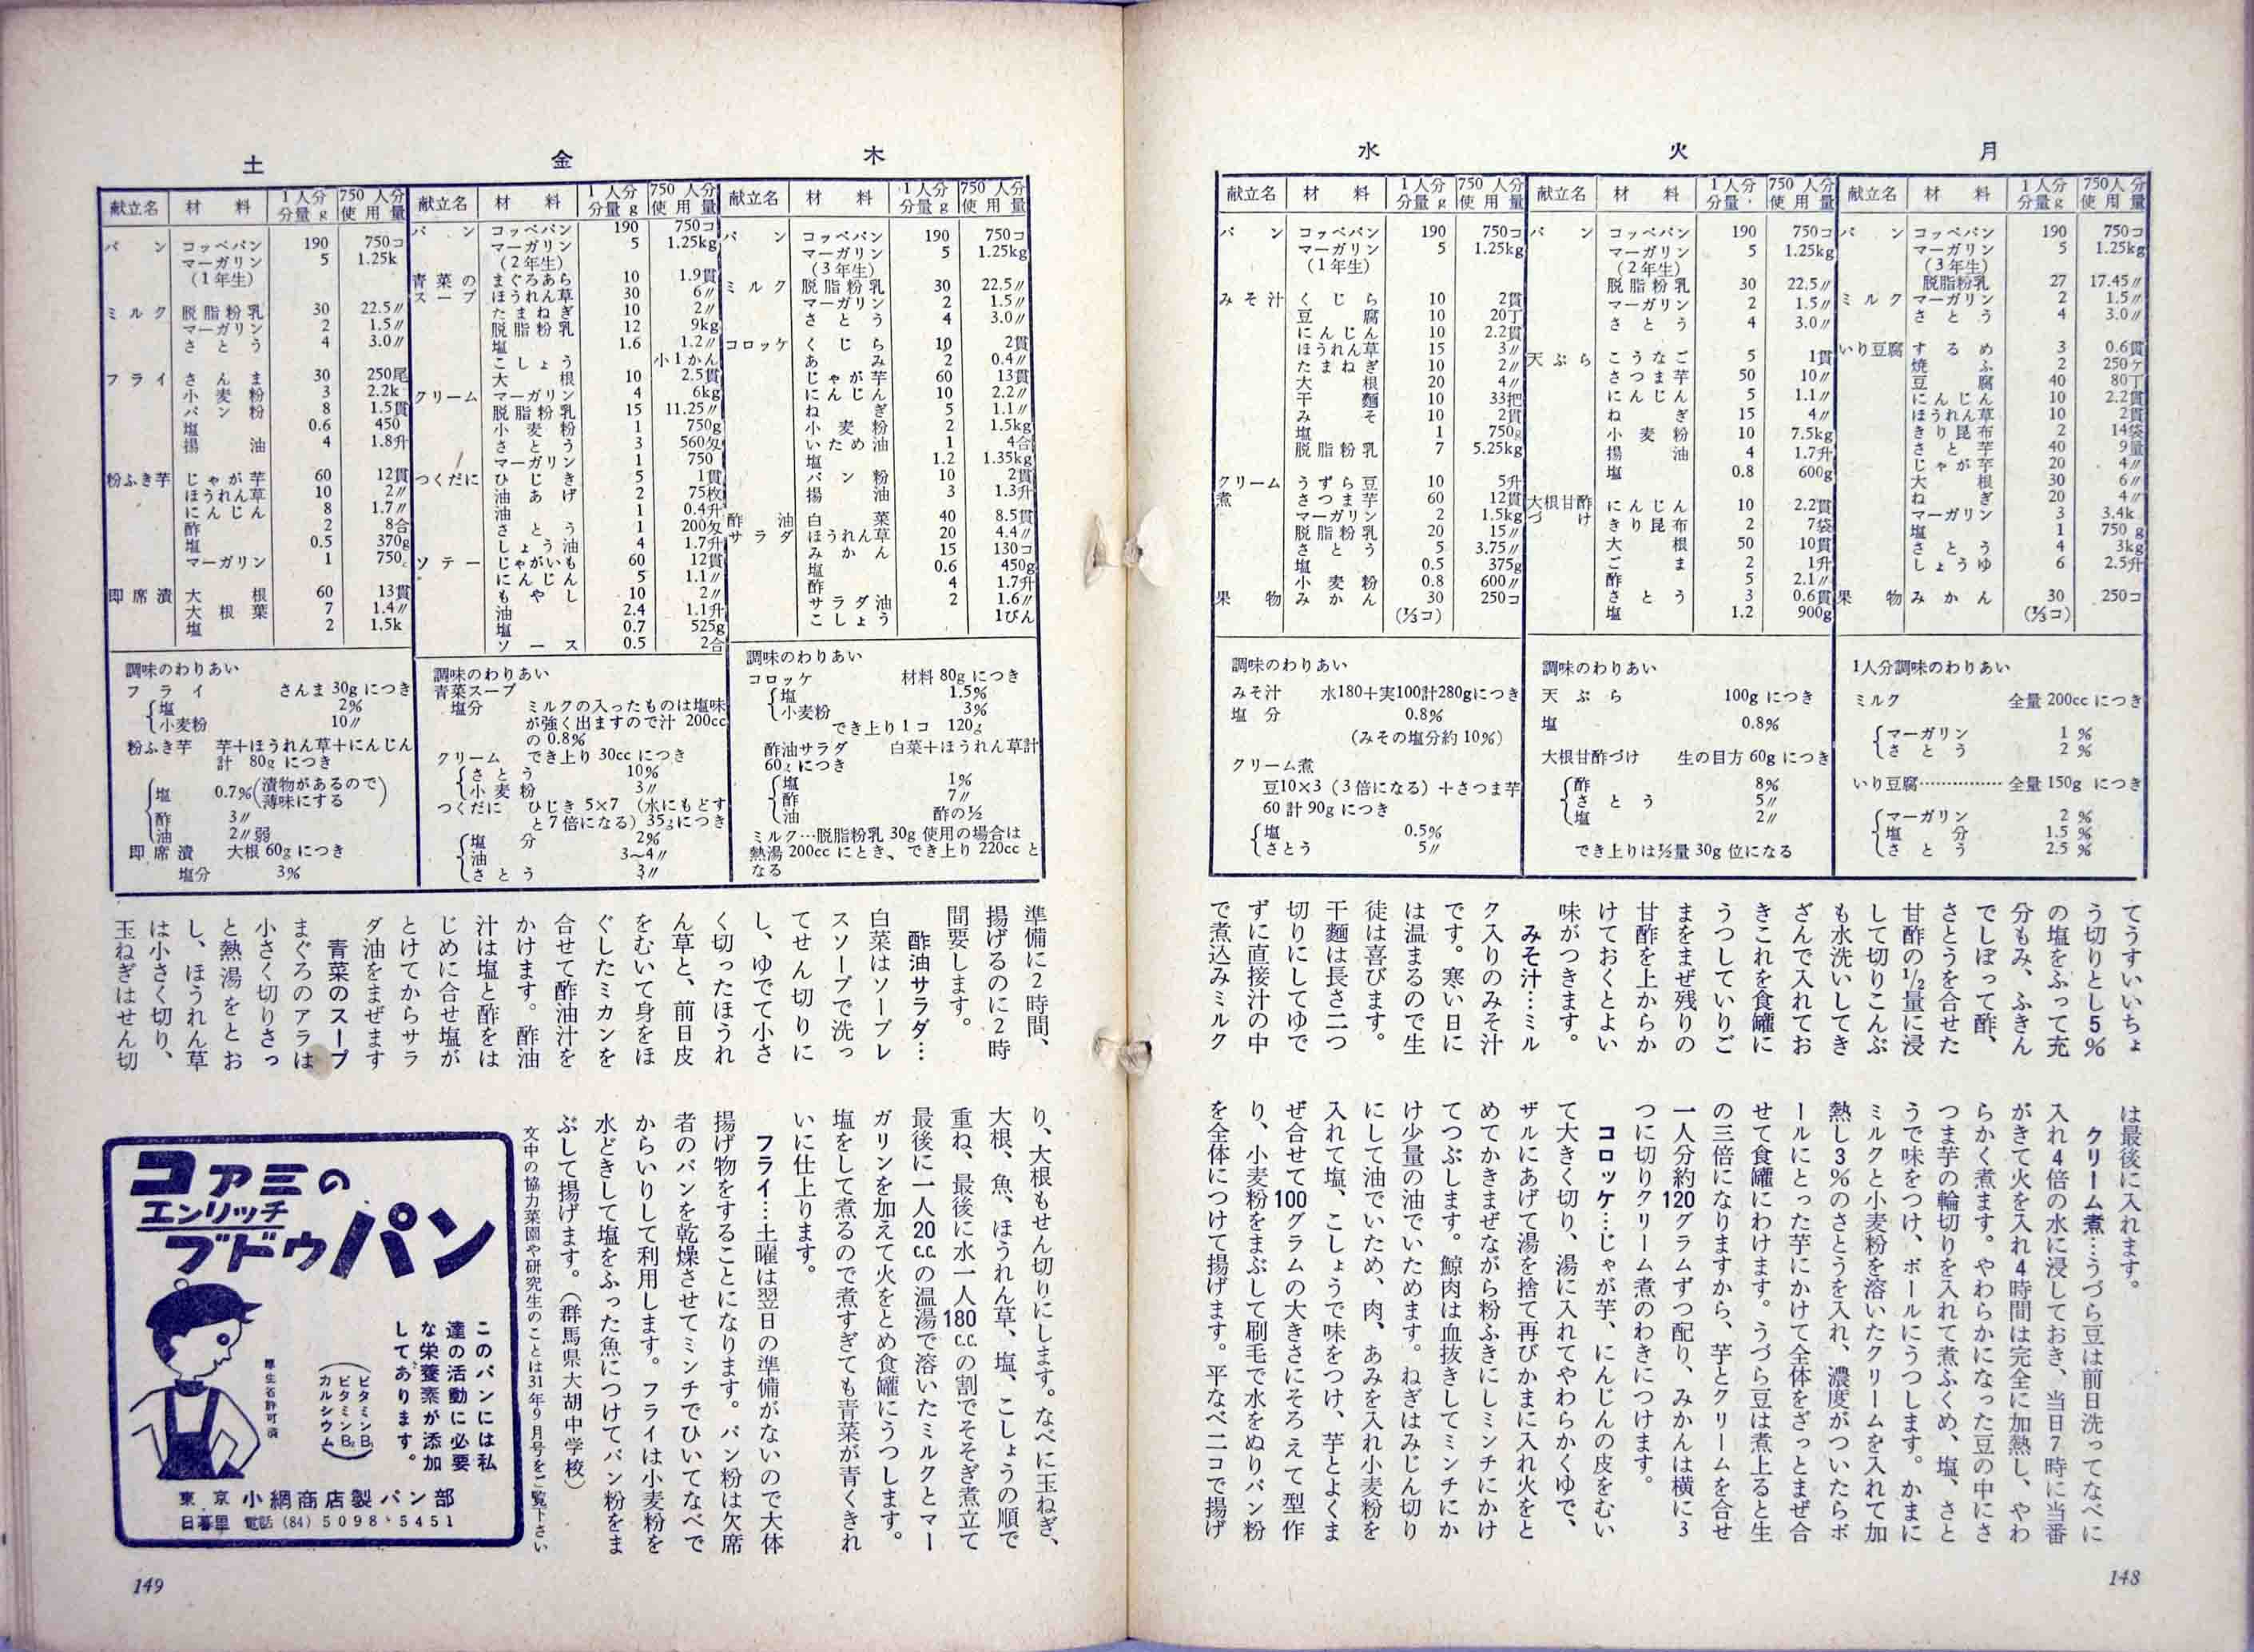 月
献立名 材料 1人分分量g 750人分使用量
パン コッペパン 190 750コ
マーガリン 5 1.25kg
(3年生)
脱脂粉乳 27 17.45〃
ミルク マーガリン 2 1.5〃
さとう 4 3.0〃
いり豆腐 するめ 3 0.6貫
焼ふ 2 250ヶ
豆腐 40 80丁
にんじん 10 2.2貫
ほうれん草 10 2貫
きり昆布 2 14袋
さと芋 40 9量
じゃが芋 20 4〃
大根 30 6〃
ねぎ 20 4〃
マーガリン 3 3.4k
塩 1 750g
さとう 4 3kg
しょうゆ 6 2.5升
果物 みかん 30 250コ
(⅓コ)
1人分調味のわりあい
ミルク 全量200ccにつき
マーガリン 1%
さとう 2%
いり豆腐…………… 全量150gにつき
マーガリン 2%
塩分 1.5%
さとう 2.5%
火
献立名 材料 1人分分量・ 750人分使用量
パン コッペパン 190 750コ
マーガリン 5 1.25kg
(2年生)
脱脂粉乳 30 22.5〃
マーガリン 2 1.5〃
さとう 4 3.0〃
天ぷら こうなご 5 1貫
さつま芋 50 10〃
にんじん 5 1.1〃
ねぎ 15 4〃
小麦粉 10 7.5kg
揚油 4 1.7升
塩 0.8 600g
大根甘酢づけ にんじん 10 2.2貫
きり昆布 2 7袋
大根 50 10貫
ごま 2 1升
酢 5 2.1〃
さとう 3 0.6貫
塩 1.2 900g
調味のわりあい
天ぷら 100gにつき
塩 0.8%
大根甘酢づけ 生の目方60gにつき
酢 8%
さとう 5〃
塩 2〃
でき上りは½量30g位になる
水
献立名 材料 1人分分量g 750人分使用量
パン コッペパン 190 750コ
マーガリン 5 1.25kg
(1年生)
みそ汁 くじら 10 2貫
豆腐 10 20丁
にんじん 10 2.2貫
ほうれん草 15 3〃
たまねぎ 10 2〃
大根 20 4〃
干麺 10 33把
みそ 10 2貫
塩 1 750g
脱脂粉乳 7 5.25kg
クリーム煮 うずら豆 10 5升
さつま芋 60 12貫
マーガリン 2 1.5kg
脱脂粉乳 20 15〃
さとう 5 3.75〃
塩 0.5 375g
小麦粉 0.8 600〃
果物 みかん 30 250コ
(⅓コ)
調味のわりあい
みそ汁 水180+実100計280gにつき
塩分 0.8%
(みその塩分約10%)
クリーム煮
豆10×3(3倍になる)+さつま芋
60計90gにつき
塩 0.5%
さとう 5〃
てうすいいちょ
う切りとし5%
の塩をふって充
分もみ、ふきん
でしぼって酢、
さとうを合せた
甘酢の1/2量に浸
して切りこんぶ
も水洗いしてき
ざんで入れてお
きこれを食罐に
うつしていりご
まをまぜ残りの
甘酢を上からか
けておくとよい
味がつきます。
みそ汁…ミル
ク入りのみそ汁
です。寒い日に
は温まるので生
徒は喜びます。
干麺は長さ二つ
切りにしてゆで
ずに直接汁の中
で煮込みミルク
は最後に入れます。
クリーム煮…うづら豆は前日洗ってなべに
入れ4倍の水に浸しておき、当日7時に当番
がきて火を入れ4時間は完全に加熱し、やわ
らかく煮ます。やわらかになった豆の中にさ
つま芋の輪切りを入れて煮ふくめ、塩、さと
うで味をつけ、ボールにうつします。かまに
ミルクと小麦粉を溶いたクリームを入れて加
熱し3%のさとうを入れ、濃度がついたらボ
ールにとった芋にかけて全体をざっとまぜ合
せて食罐にわけます。うづら豆は煮上ると生
の三倍になりますから、芋とクリームを合せ
一人分約120グラムずつ配り、みかんは横に3
つに切りクリーム煮のわきにつけます。
コロッケ…じゃが芋、にんじんの皮をむい
て大きく切り、湯に入れてやわらかくゆで、
ザルにあげて湯を捨て再びかまに入れ火をと
めてかきまぜながら粉ふきにしミンチにかけ
てつぶします。鯨肉は血抜きしてミンチにか
け少量の油でいためます。ねぎはみじん切り
にして油でいため、肉、あみを入れ小麦粉を
入れて塩、こしょうで味をつけ、芋とよくま
ぜ合せて100グラムの大きさにそろえて型作
り、小麦粉をまぶして刷毛で水をぬりパン粉
を全体につけて揚げます。平なべ二コで揚げ
148
木
献立名 材料 1人分分量g 750人分使用量
パン コッペパン 190 750コ
マーガリン 5 1.25kg
(3年生)
ミルク 脱脂粉乳 30 22.5〃
マーガリン 2 1.5〃
さとう 4 3.0〃
コロッケ くじら 10 2貫
あみ 2 0.4〃
じゃが芋 60 13貫
にんじん 10 2.2〃
ねぎ 5 1.1〃
小麦粉 2 1.5kg
いため油 1 4合
塩 1.2 1.35kg
パン粉 10 2貫
揚油 3 1.3升
酢油サラダ 白菜 40 8.5貫
ほうれん草 20 4.4〃
みかん 15 130コ
塩 0.6 450g
酢 4 1.7升
サラダ油 2 1.6〃
こしょう 1びん
調味のわりあい
コロッケ 材料80gにつき
塩 1.5%
小麦粉 3%
でき上り1コ 120g
酢油サラダ 白菜+ほうれん草計
60gにつき
塩 1%
酢 7〃
油 酢の½
ミルク…脱脂粉乳30g使用の場合は
熱湯200ccにとき、でき上り220ccと
なる
金
献立名 材料 1人分分量g 750人分使用量
パン コッペパン 190 750コ
マーガリン 5 1.25kg
(2年生)
青菜のスープ まぐろあら 10 1.9貫
ほうれん草 30 6〃
たまねぎ 10 2〃
脱脂粉乳 12 9kg
塩 1.6 1.2〃
こしょう 小1かん
大根 10 2.5貫
クリーム マーガリン 4 6kg
脱脂粉乳 15 11.25〃
小麦粉 1 750g
さとう 3 560匁
マーガリン 1 750
つくだに ひじき 5 1貫
油あげ 2 75枚
油 1 0.4升
さとう 1 200匁
しょう油 4 1.7升
ソテー じゃがいも 60 12貫
にんじん 5 1.1〃
もやし 10 2〃
油 2.4 1.1升
塩 0.7 525g
ソース 0.5 2合
調味のわりあい
青菜スープ
塩分 ミルクの入ったものは塩味
が強く出ますので汁200cc
の0.8%
クリーム でき上り30ccにつき
さとう 10%
小麦粉 3〃
つくだに ひじき5×7(水にもどす
と7倍になる)35gにつき
塩分 2%
油 3〜4〃
さとう 3〃
土
献立名 材料 1人分分量g 750人分使用量
パン コッペパン 190 750コ
マーガリン 5 1.25k
(1年生)
ミルク 脱脂粉乳 30 22.5〃
マーガリン 2 1.5〃
さとう 4 3.0〃
フライ さんま 30 250尾
小麦粉 3 2.2k
パン粉 8 1.5貫
塩 0.6 450
揚油 4 1.8升
粉ふき芋 じゃが芋 60 12貫
ほうれん草 10 2〃
にんじん 8 1.7〃
酢 2 8合
塩 0.5 370g
マーガリン 1 750g
即席漬 大根 60 13貫
大根葉 7 1.4〃
塩 2 1.5k
調味のわりあい
フライ さんま30gにつき
塩 2%
小麦粉 10〃
粉ふき芋 芋+ほうれん草+にんじん
計80gにつき
塩 0.7%(漬物があるので薄味にする)
酢 3〃
油 2〃弱
即席漬 大根60gにつき
塩分 3%
準備に2時間、
揚げるのに2時
間要します。
酢油サラダ…
白菜はソープレ
スソープで洗っ
てせん切りに
し、ゆでて小さ
く切ったほうれ
ん草と、前日皮
をむいて身をほ
ぐしたミカンを
合せて酢油汁を
かけます。酢油
汁は塩と酢をは
じめに合せ塩が
とけてからサラ
ダ油をまぜます
青菜のスープ
まぐろのアラは
小さく切りさっ
と熱湯をとお
し、ほうれん草
は小さく切り、
玉ねぎはせん切
り、大根もせん切りにします。なべに玉ねぎ、
大根、魚、ほうれん草、塩、こしょうの順で
重ね、最後に水一人180c.c.の割でそそぎ煮立て
最後に一人20c.c.の温湯で溶いたミルクとマー
ガリンを加えて火をとめ食罐にうつします。
塩をして煮るので煮すぎても青菜が青くきれ
いに仕上ります。
フライ…土曜は翌日の準備がないので大体
揚げ物をすることになります。パン粉は欠席
者のパンを乾燥させてミンチでひいてなべで
からいりして利用します。フライは小麦粉を
水どきして塩をふった魚につけてパン粉をま
ぶして揚げます。(群馬県大胡中学校)
文中の協力菜園や研究生のことは31年9月号をご覧下さい
コアミの
エンリッチ
ブドウパン
このパンには私
達の活動に必要
な栄養素が添加
してあります。
(ビタミンB₁
ビタミンB₂
カルシウム)
厚生省許可済
東京 小網商店製パン部
日暮里 電話(84)5098・5451
149